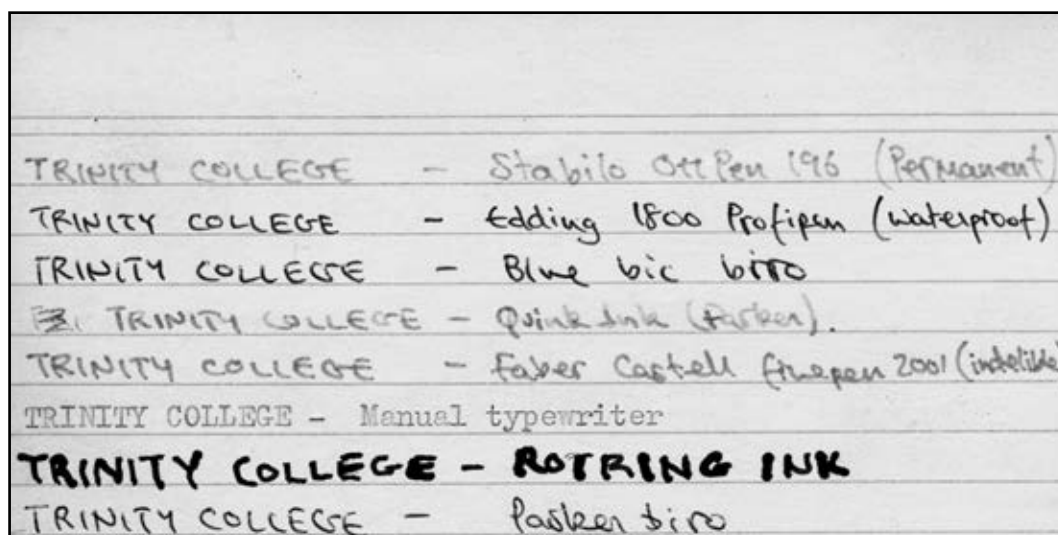 TRINITY COLLEGE - Stabilo OHPen 196 (Permanent)
TRINITY COLLEGE - Edding 1800 Profipen (waterproof)
TRINITY COLLEGE - Blue bic biro
TRINITY COLLEGE - Quink Ink (Parker).
TRINITY COLLEGE - Faber Castell finepen 2001 (indelible
TRINITY COLLEGE - Manual typewriter
TRINITY COLLEGE - ROTRING INK
TRINITY COLLEGE - Parker biro